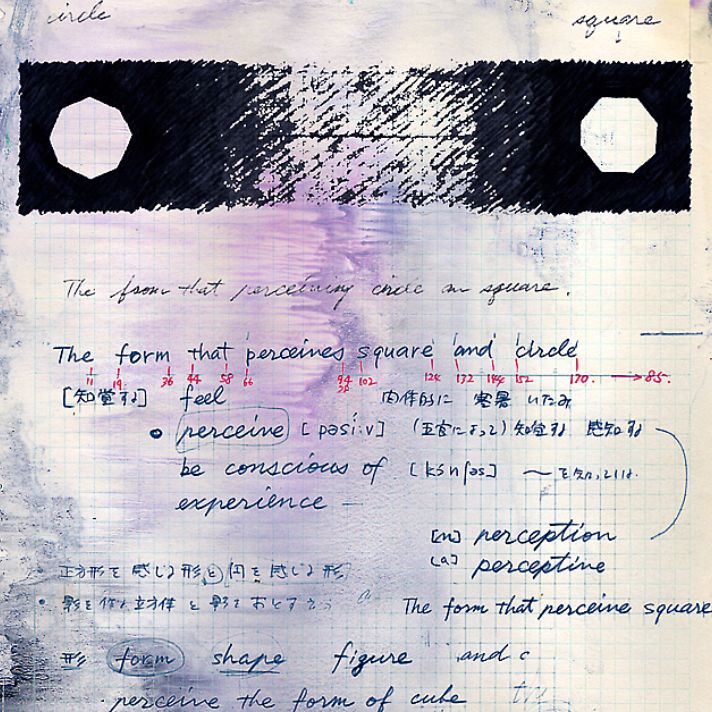 circle square
The form that perceiving circle an square.
The form that perceives square and circle
11 19 36 44 58 66 94 102 124 132 144 152 170. → 85.
[知覚する] feel 内作的に
perceive [pəsí:v] (五官によって)知覚する 感知する
be conscious of
experience —
[n] perception
[a] perceptine
・正方形を感じる形と円を感じる形
The form that perceive square
形 form shape figure and c
perceive the form of cube